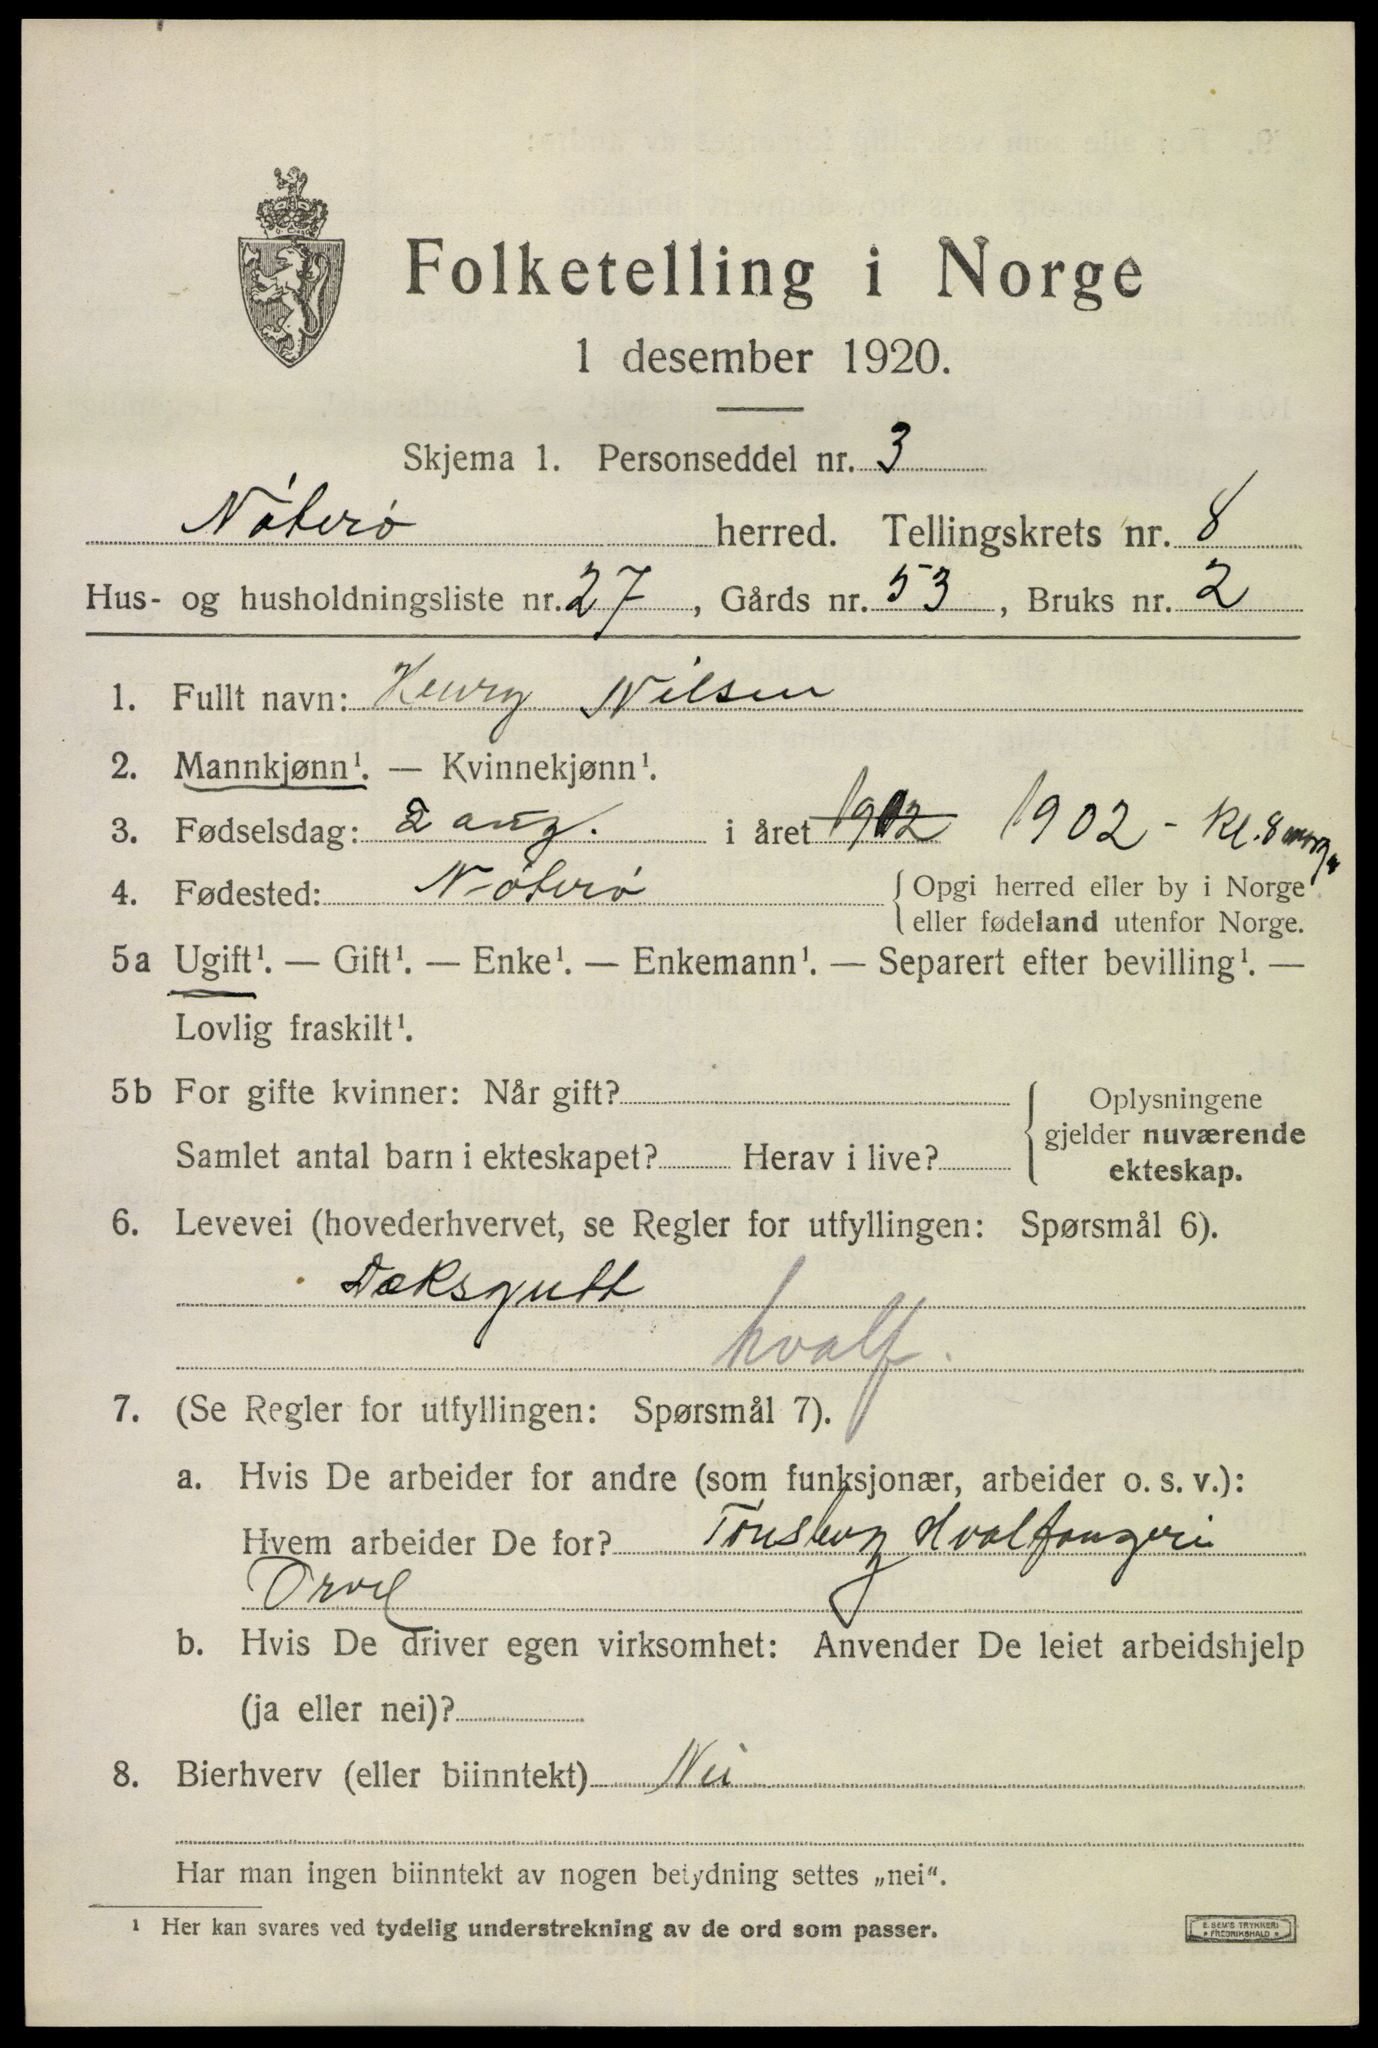 Folketelling i Norge
1 desember 1920.
Skjema 1. Personseddel nr. 3
Nöterö herred. Tellingskrets nr. 8
Hus- og husholdningsliste nr. 27, Gårds nr. 53, Bruks nr. 2
1. Fullt navn: Henry Nilsen
2. Mannkjønn¹. — Kvinnekjønn¹.
3. Fødselsdag: 2 aug. i året 1912 1902 - Kl. 8 morg.
4. Fødested: Nöterö { Opgi herred eller by i Norge
eller fødeland utenfor Norge.
5a Ugift¹. — Gift¹. — Enke¹. — Enkemann¹. — Separert efter bevilling¹. —
Lovlig fraskilt¹.
5b For gifte kvinner: Når gift? { Oplysningene
gjelder nuværende
Samlet antal barn i ekteskapet? Herav i live? ekteskap.
6. Levevei (hovederhvervet, se Regler for utfyllingen: Spørsmål 6).
Dæksgutt
hvalf.
7. (Se Regler for utfyllingen: Spørsmål 7).
a. Hvis De arbeider for andre (som funksjonær, arbeider o. s. v.):
Hvem arbeider De for? Tönsberg Hvalfangeri
Orvel
b. Hvis De driver egen virksomhet: Anvender De leiet arbeidshjelp
(ja eller nei)?
8. Bierhverv (eller biinntekt) Nei
Har man ingen biinntekt av nogen betydning settes „nei“.
¹ Her kan svares ved tydelig understrekning av de ord som passer.
E. SEM'S TRYKKERI
* FREDRIKSHALD *